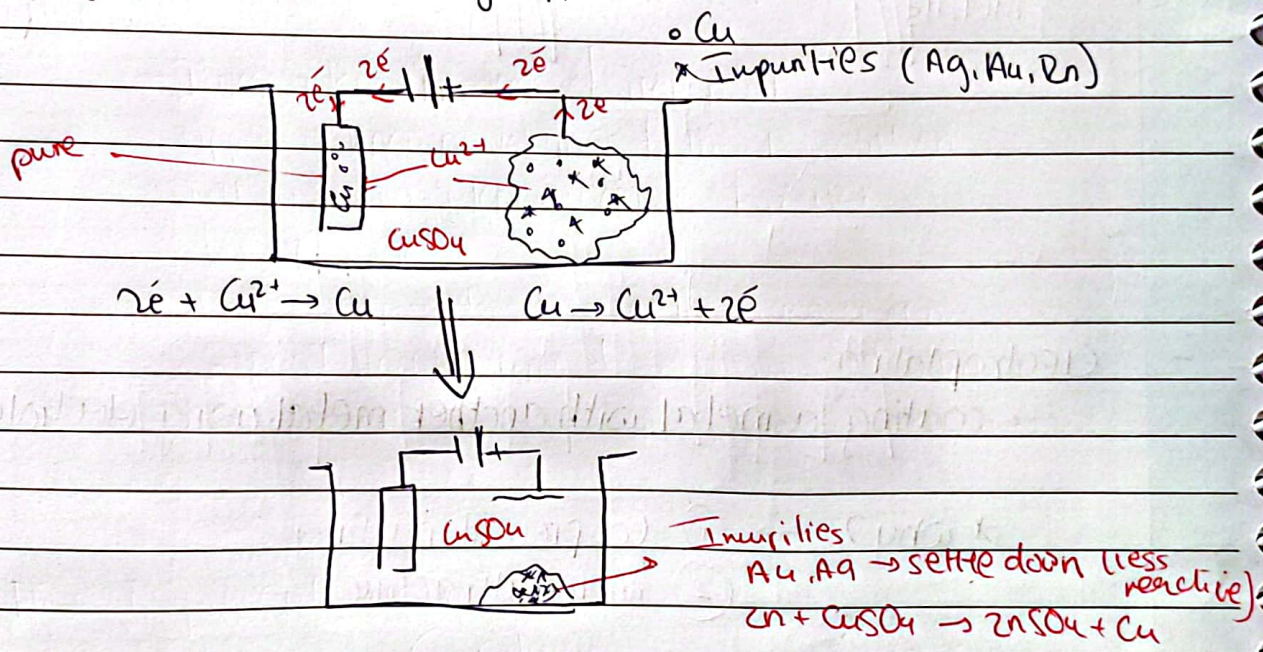 ° Cu
× Impurities (Ag, Au, Zn)
2é 2é
2é - + 2é
pure
Cu²⁺
Cu
CuSO4
2é + Cu²⁺ → Cu Cu → Cu²⁺ + 2é
- +
CuSO4
Imurilies
Au, Ag → settle down (less
reactive)
Zn + CuSO4 → ZnSO4 + Cu